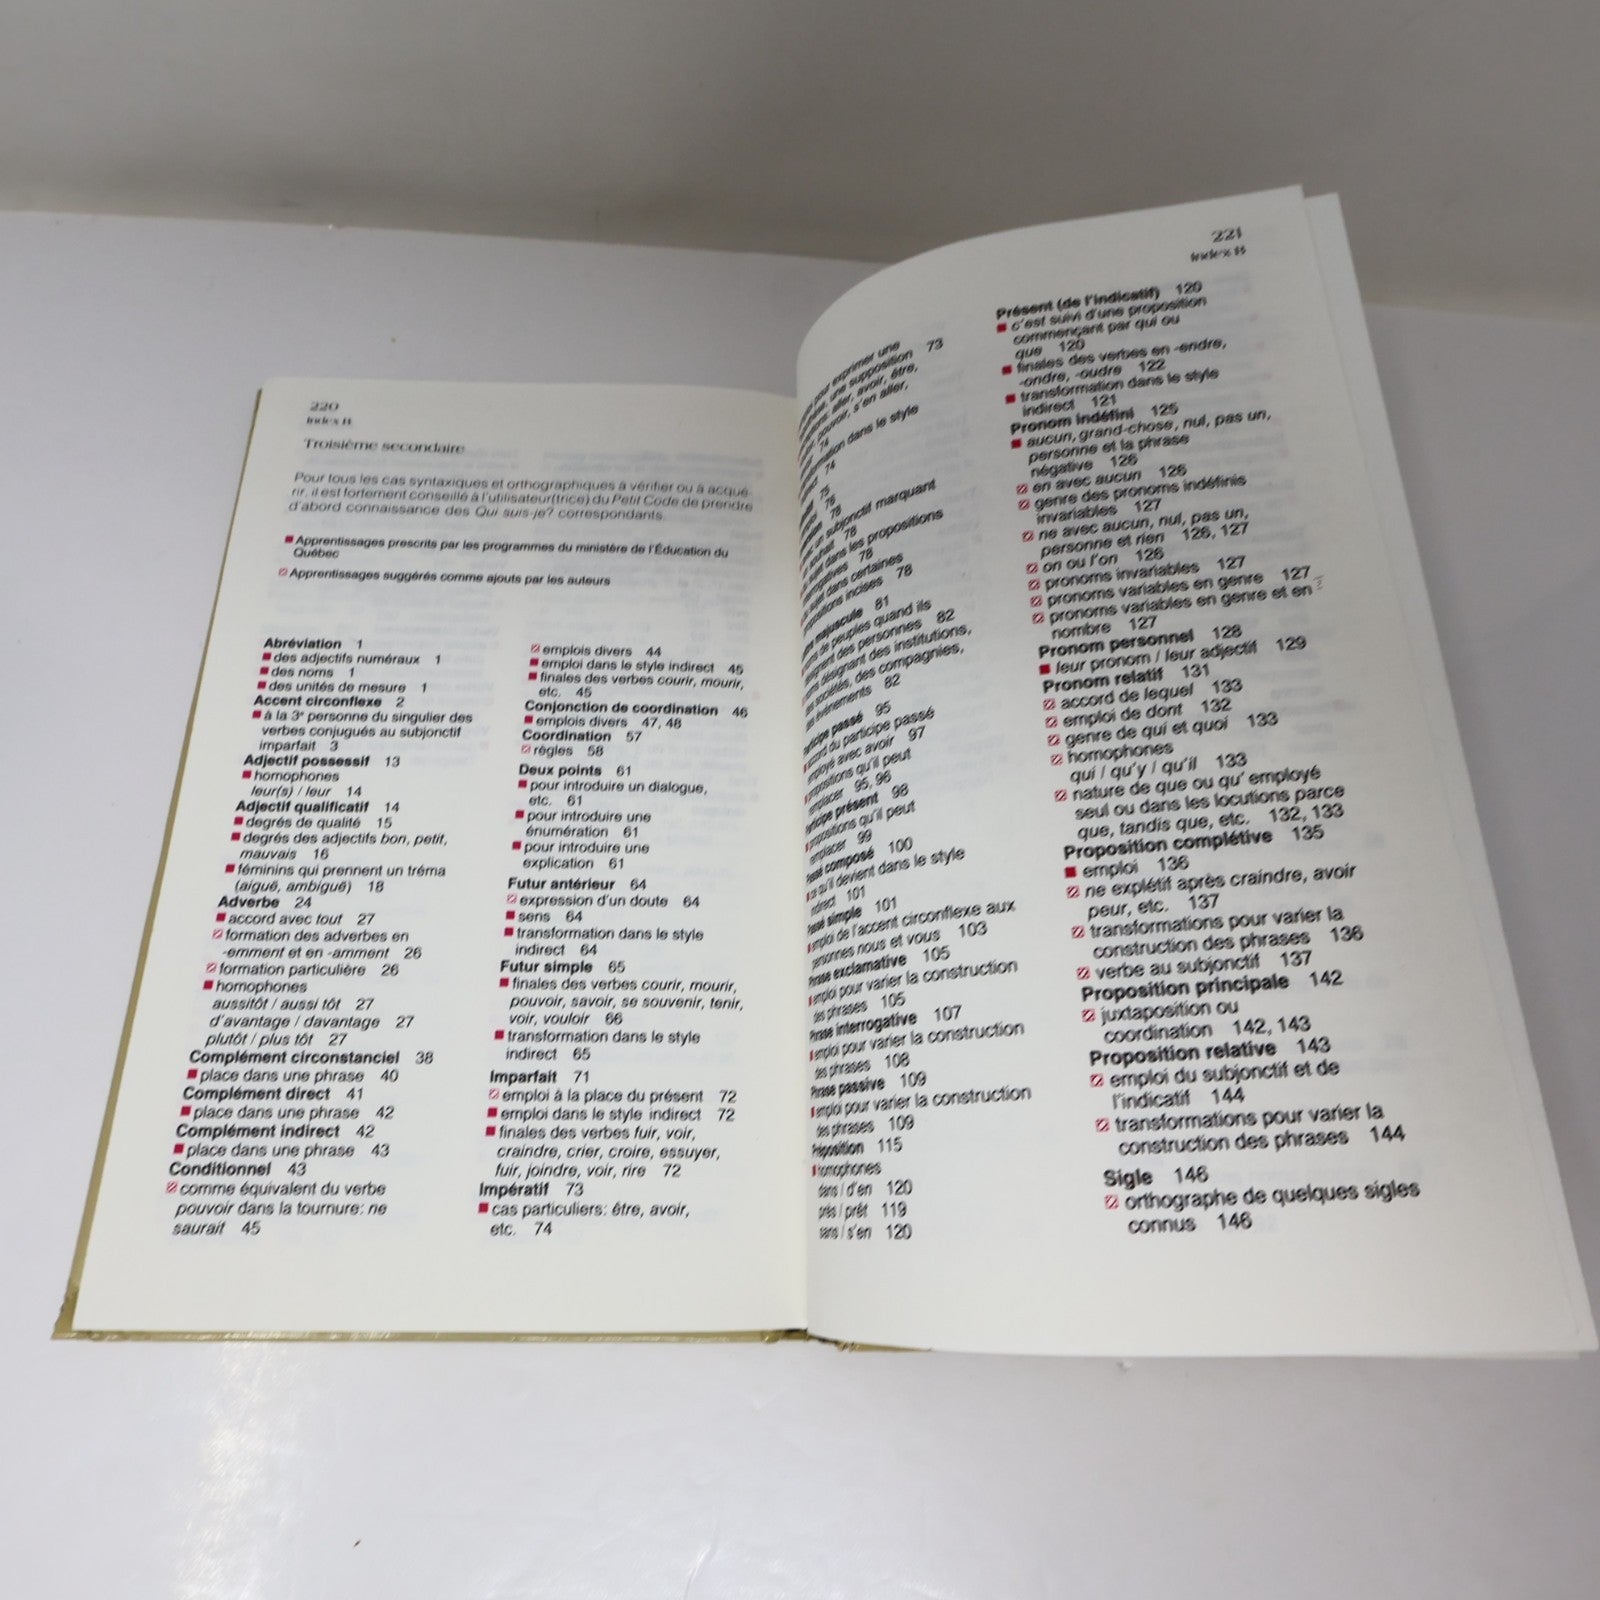 220
Index B
Troisième secondaire
Pour tous les cas syntaxiques et orthographiques à vérifier ou à acqué-
rir, il est fortement conseillé à l'utilisateur(trice) du Petit Code de prendre
d'abord connaissance des Qui suis-je? correspondants.
Apprentissages prescrits par les programmes du ministère de l'Éducation du
Québec
Apprentissages suggérés comme ajouts par les auteurs
Abréviation 1
des adjectifs numéraux 1
des noms 1
des unités de mesure 1
Accent circonflexe 2
à la 3e personne du singulier des
verbes conjugués au subjonctif
imparfait 3
Adjectif possessif 13
homophones
leur(s) / leur 14
Adjectif qualificatif 14
degrés de qualité 15
degrés des adjectifs bon, petit,
mauvais 16
féminins qui prennent un tréma
(aiguë, ambiguë) 18
Adverbe 24
accord avec tout 27
formation des adverbes en
-emment et en -amment 26
formation particulière 26
homophones
aussitôt / aussi tôt 27
d'avantage / davantage 27
plutôt / plus tôt 27
Complément circonstanciel 38
place dans une phrase 40
Complément direct 41
place dans une phrase 42
Complément indirect 42
place dans une phrase 43
Conditionnel 43
comme équivalent du verbe
pouvoir dans la tournure: ne
saurait 45
emplois divers 44
emploi dans le style indirect 45
finales des verbes courir, mourir,
etc. 45
Conjonction de coordination 46
emplois divers 47, 48
Coordination 57
règles 58
Deux points 61
pour introduire un dialogue,
etc. 61
pour introduire une
énumération 61
pour introduire une
explication 61
Futur antérieur 64
expression d'un doute 64
sens 64
transformation dans le style
indirect 64
Futur simple 65
finales des verbes courir, mourir,
pouvoir, savoir, se souvenir, tenir,
voir, vouloir 66
transformation dans le style
indirect 65
Imparfait 71
emploi à la place du présent 72
emploi dans le style indirect 72
finales des verbes fuir, voir,
craindre, crier, croire, essuyer,
fuir, joindre, voir, rire 72
Impératif 73
cas particuliers: être, avoir,
etc. 74
221
Index B
pour exprimer une
une supposition 73
aller, avoir, être,
pouvoir, s'en aller,
74
dans le style
74
75
76
78
un subjonctif marquant
78
dans les propositions
78
dans certaines
incises 78
majuscule 81
de peuples quand ils
des personnes 82
désignant des institutions,
sociétés, des compagnies,
événements 82
passé 95
accord du participe passé
employé avec avoir 97
propositions qu'il peut
remplacer 95, 96
présent 98
propositions qu'il peut
remplacer 99
composé 100
ce qu'il devient dans le style
indirect 101
simple 101
emploi de l'accent circonflexe aux
personnes nous et vous 103
Phrase exclamative 105
emploi pour varier la construction
des phrases 105
Phrase interrogative 107
emploi pour varier la construction
des phrases 108
Phrase passive 109
emploi pour varier la construction
des phrases 109
Préposition 115
homophones
dans / d'en 120
près / prêt 119
sans / s'en 120
Présent (de l'indicatif) 120
c'est suivi d'une proposition
commençant par qui ou
que 120
finales des verbes en -endre,
-ondre, -oudre 122
transformation dans le style
indirect 121
Pronom indéfini 125
aucun, grand-chose, nul, pas un,
personne et la phrase
négative 126
en avec aucun 126
genre des pronoms indéfinis
invariables 127
ne avec aucun, nul, pas un,
personne et rien 126, 127
on ou l'on 126
pronoms invariables 127
pronoms variables en genre 127
pronoms variables en genre et en
nombre 127
Pronom personnel 128
leur pronom / leur adjectif 129
Pronom relatif 131
accord de lequel 133
emploi de dont 132
genre de qui et quoi 133
homophones
qui / qu'y / qu'il 133
nature de que ou qu' employé
seul ou dans les locutions parce
que, tandis que, etc. 132, 133
Proposition complétive 135
emploi 136
ne explétif après craindre, avoir
peur, etc. 137
transformations pour varier la
construction des phrases 136
verbe au subjonctif 137
Proposition principale 142
juxtaposition ou
coordination 142, 143
Proposition relative 143
emploi du subjonctif et de
l'indicatif 144
transformations pour varier la
construction des phrases 144
Sigle 146
orthographe de quelques sigles
connus 146